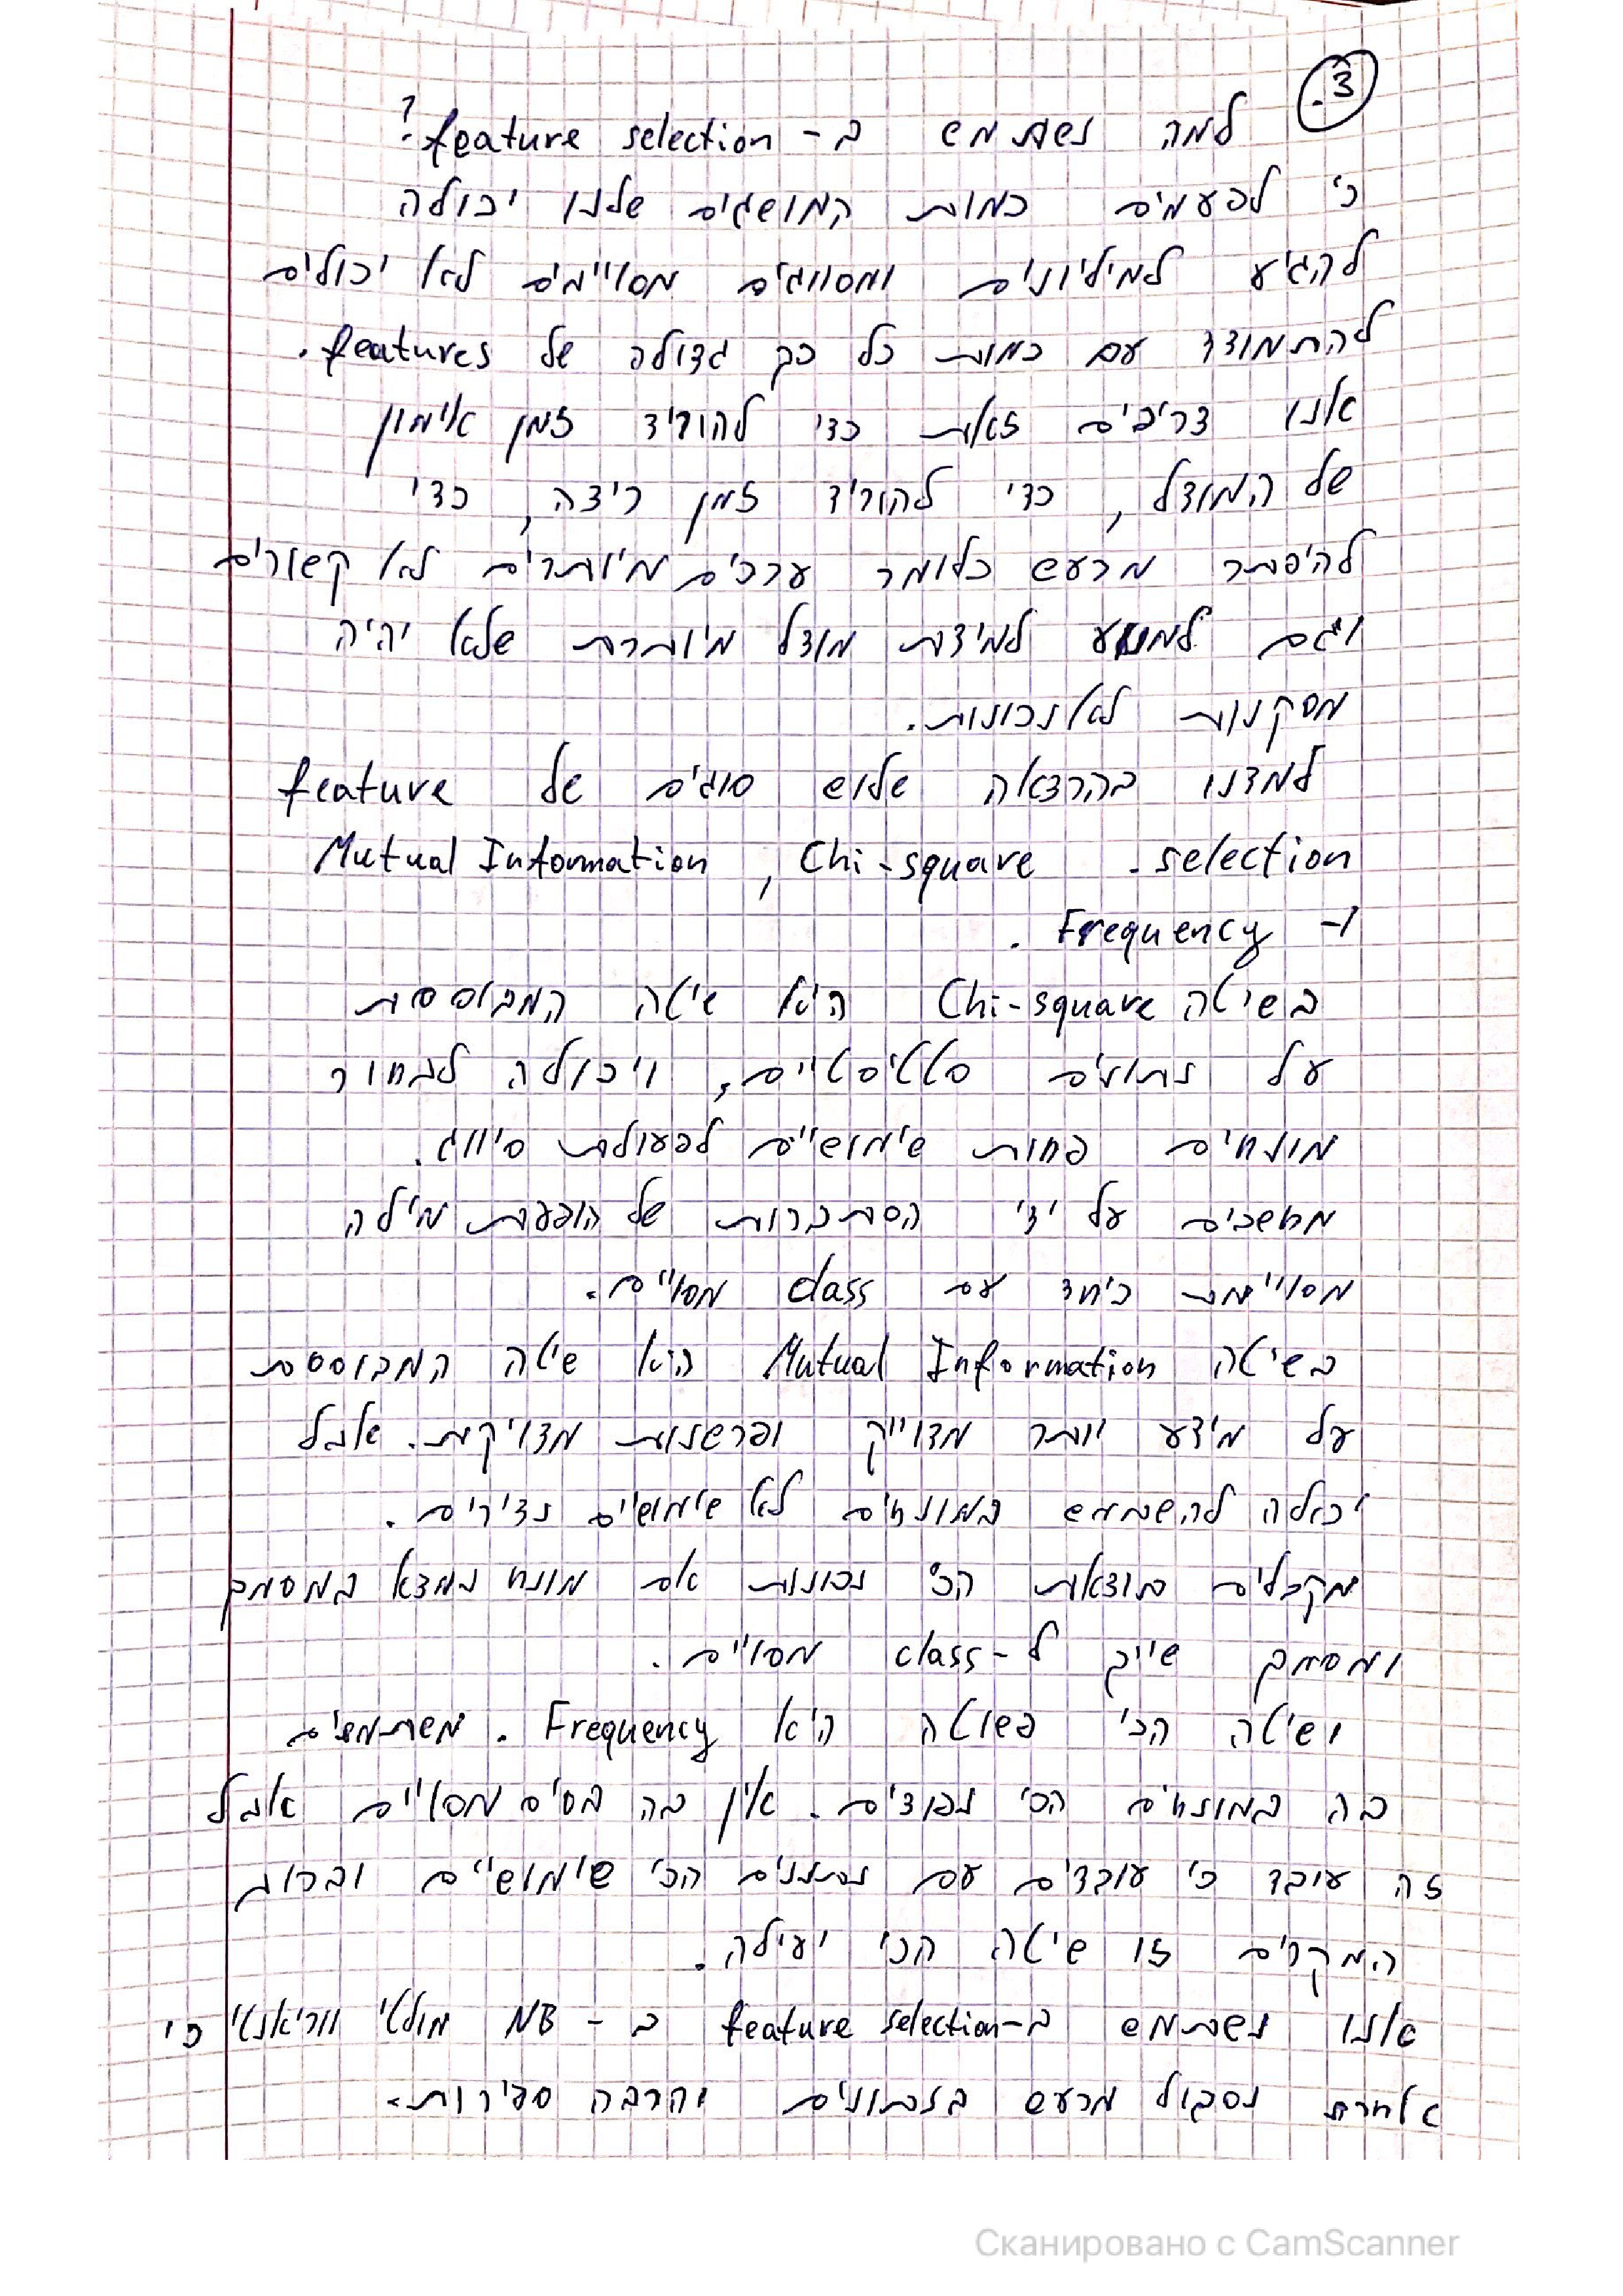 3.
למה נשתמש ב- feature selection?
כי לפעמים כמות המושגים שלנו יכולה
להגיע למיליונים ומסווגים מסויימים לא יכולים
להתמודד עם כמות כל כך גדולה של features.
אנו צריכים זאת כדי להוריד זמן אימון
של המודל, כדי להוריד זמן ריצה, כדי
להיפתר מרעש כלומר ערכים מיותרים לא קשורים
וגם למנוע למידת מודל מיותרת שלא יהיה
מסקנות לא נכונות.
למדנו בהרצאה שלוש סוגים של feature
selection - Chi-square, Mutual Information
ו- Frequency.
בשיטה Chi-square היא שיטה המבוססת
על נתונים סטטיסטיים, ויכולה לבחור
מונחים פחות שימושיים לפעולת סיווג.
מחשבים על ידי הסתברות של הופעת מילה
מסויימת ביחד עם class מסויים.
בשיטה Mutual Information היא שיטה המבוססת
על מידע יותר מדוייק ופרשנות מדויקת. אבל
יכולה להשתמש במונחים לא שימושיים נדירים.
מקבלים תוצאות הכי נכונות אם מונח נמצא במסמך
ומסמך שייך ל-class מסויים.
ושיטה הכי פשוטה היא Frequency. משתמשים
בה במונחים הכי נפוצים. אין בה בסיס מסויים אבל
זה עובד כי עובדים עם נתונים הכי שימושיים וברוב
המקרים זו שיטה הכי יעילה.
אנו נשתמש ב-feature selection ב- NB מולטי ווריאנטי כי
אחרת נסבול מרעש בנתונים והרבה ספירות.
Сканировано с CamScanner